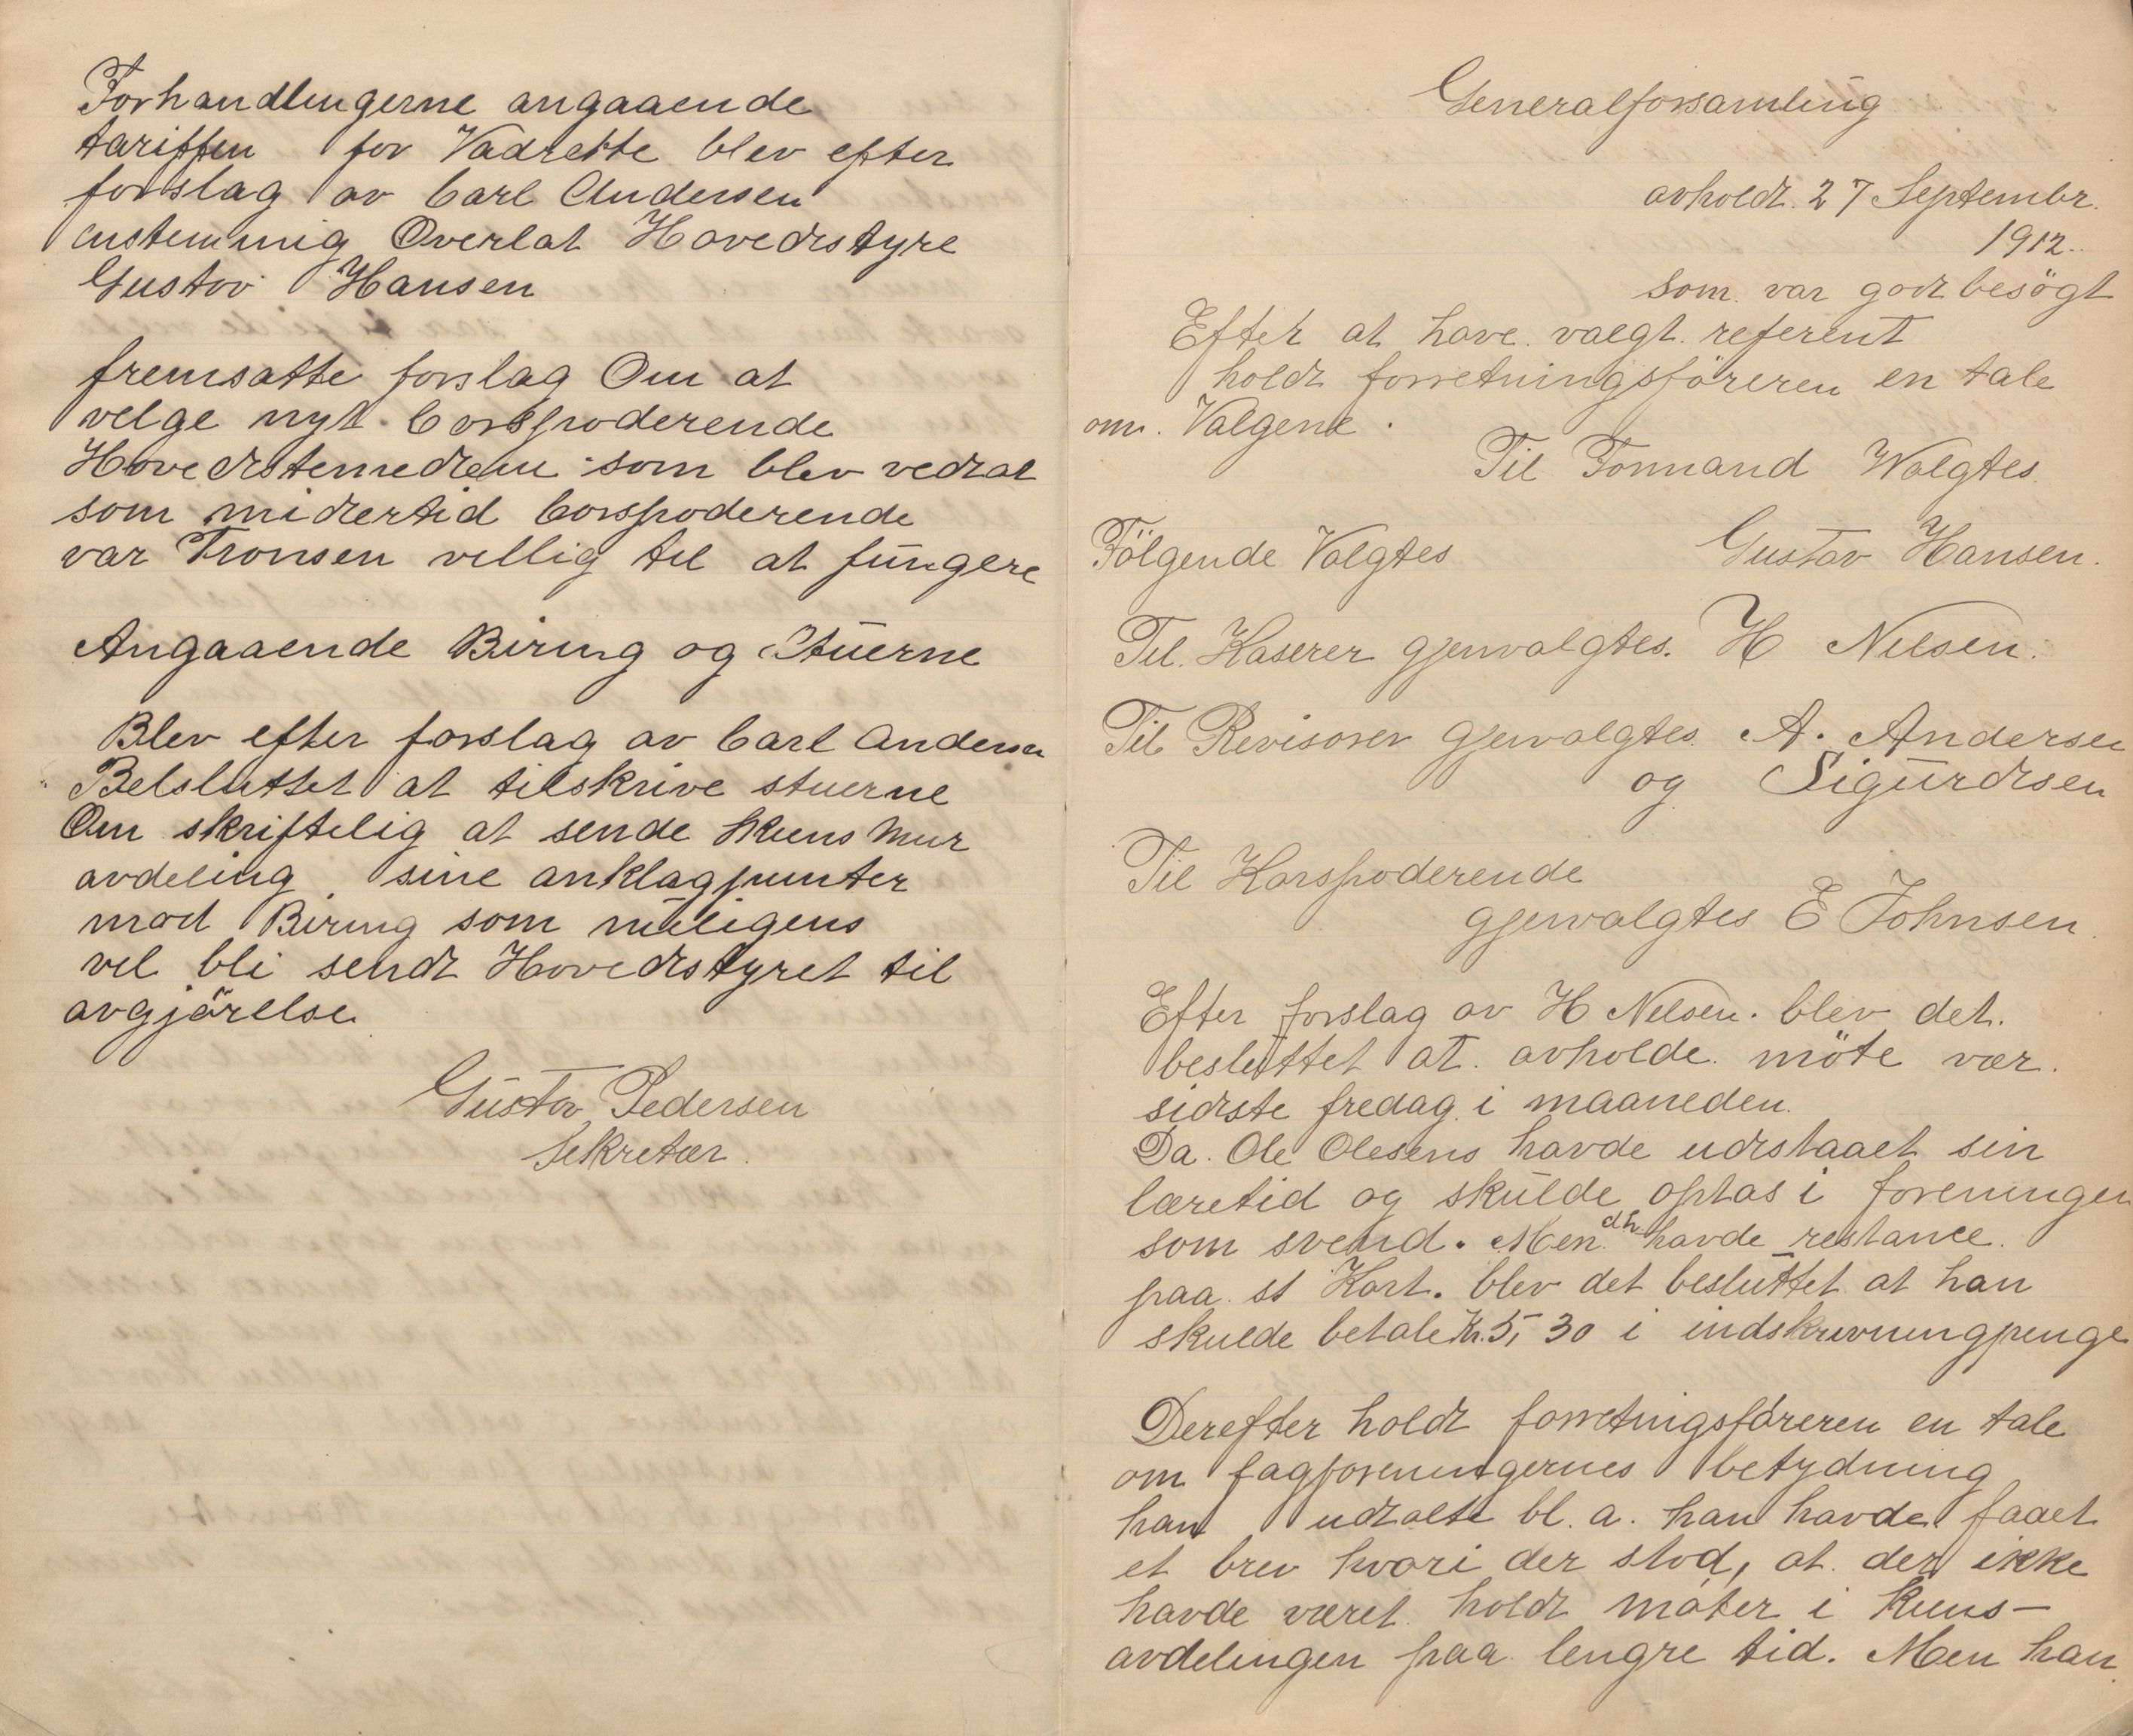 Forhandlingerne angaaende
tariffen for Vadrette blev efter
forslag av Carl Andersen
enstemmig Overlat Hovedstyre
Gustav Hansen
fremsatte forslag Om at
velge nyt Corspoderende
som blev vedtat
som midlertid Corspoderende
var Tronsen villig til at fungere
Angaaende Biring og Stuerne
Blev efter forslag av Carl Andersen
Belsluttet at tilskrive stuerne
Om skriftelig at sende Kuns Mur
avdeling sine anklagpunter
mod Biring som muligens
vil bli sendt Hovedstyret til
avgjörelse
Gustav Pedersen
Sekretær.
Generalforsamling
avholdt. 27 Septembr.
1912.
som var godt besögt
Efter at have valgt referent
holdt forretningsföreren en tale
om. Valgene.
Til Formand Valgtes
Fölgende Valgtes Gustav Hansen.
Til. Kaserer gjenvalgtes. H Nilsen.
Til Revisorer gjenvalgtes A. Andersen
og Sigurdsen
Til Korspoderende
gjenvalgtes E Johnsen.
Efter forslag av H Nilsen. blev det.
besluttet at. avholde. möte vær.
sidste fredag i maaneden.
Da. Ole Olesens havde udstaaet sin
læretid og skulde optas i foreningen
som svend. Men dh. havde restance.
paa st Kort. blev det besluttet at han
skulde betale Kr. 5,30 i indskrivningpenge
Derefter holdt forretningsföreren en tale
om fagforeningernes betydning
han udtalte bl. a. han havde faaet
et brev hvori der stod, at der ikke
havde været holdt möter i Kuns-
avdelingen paa lengre tid. Men han